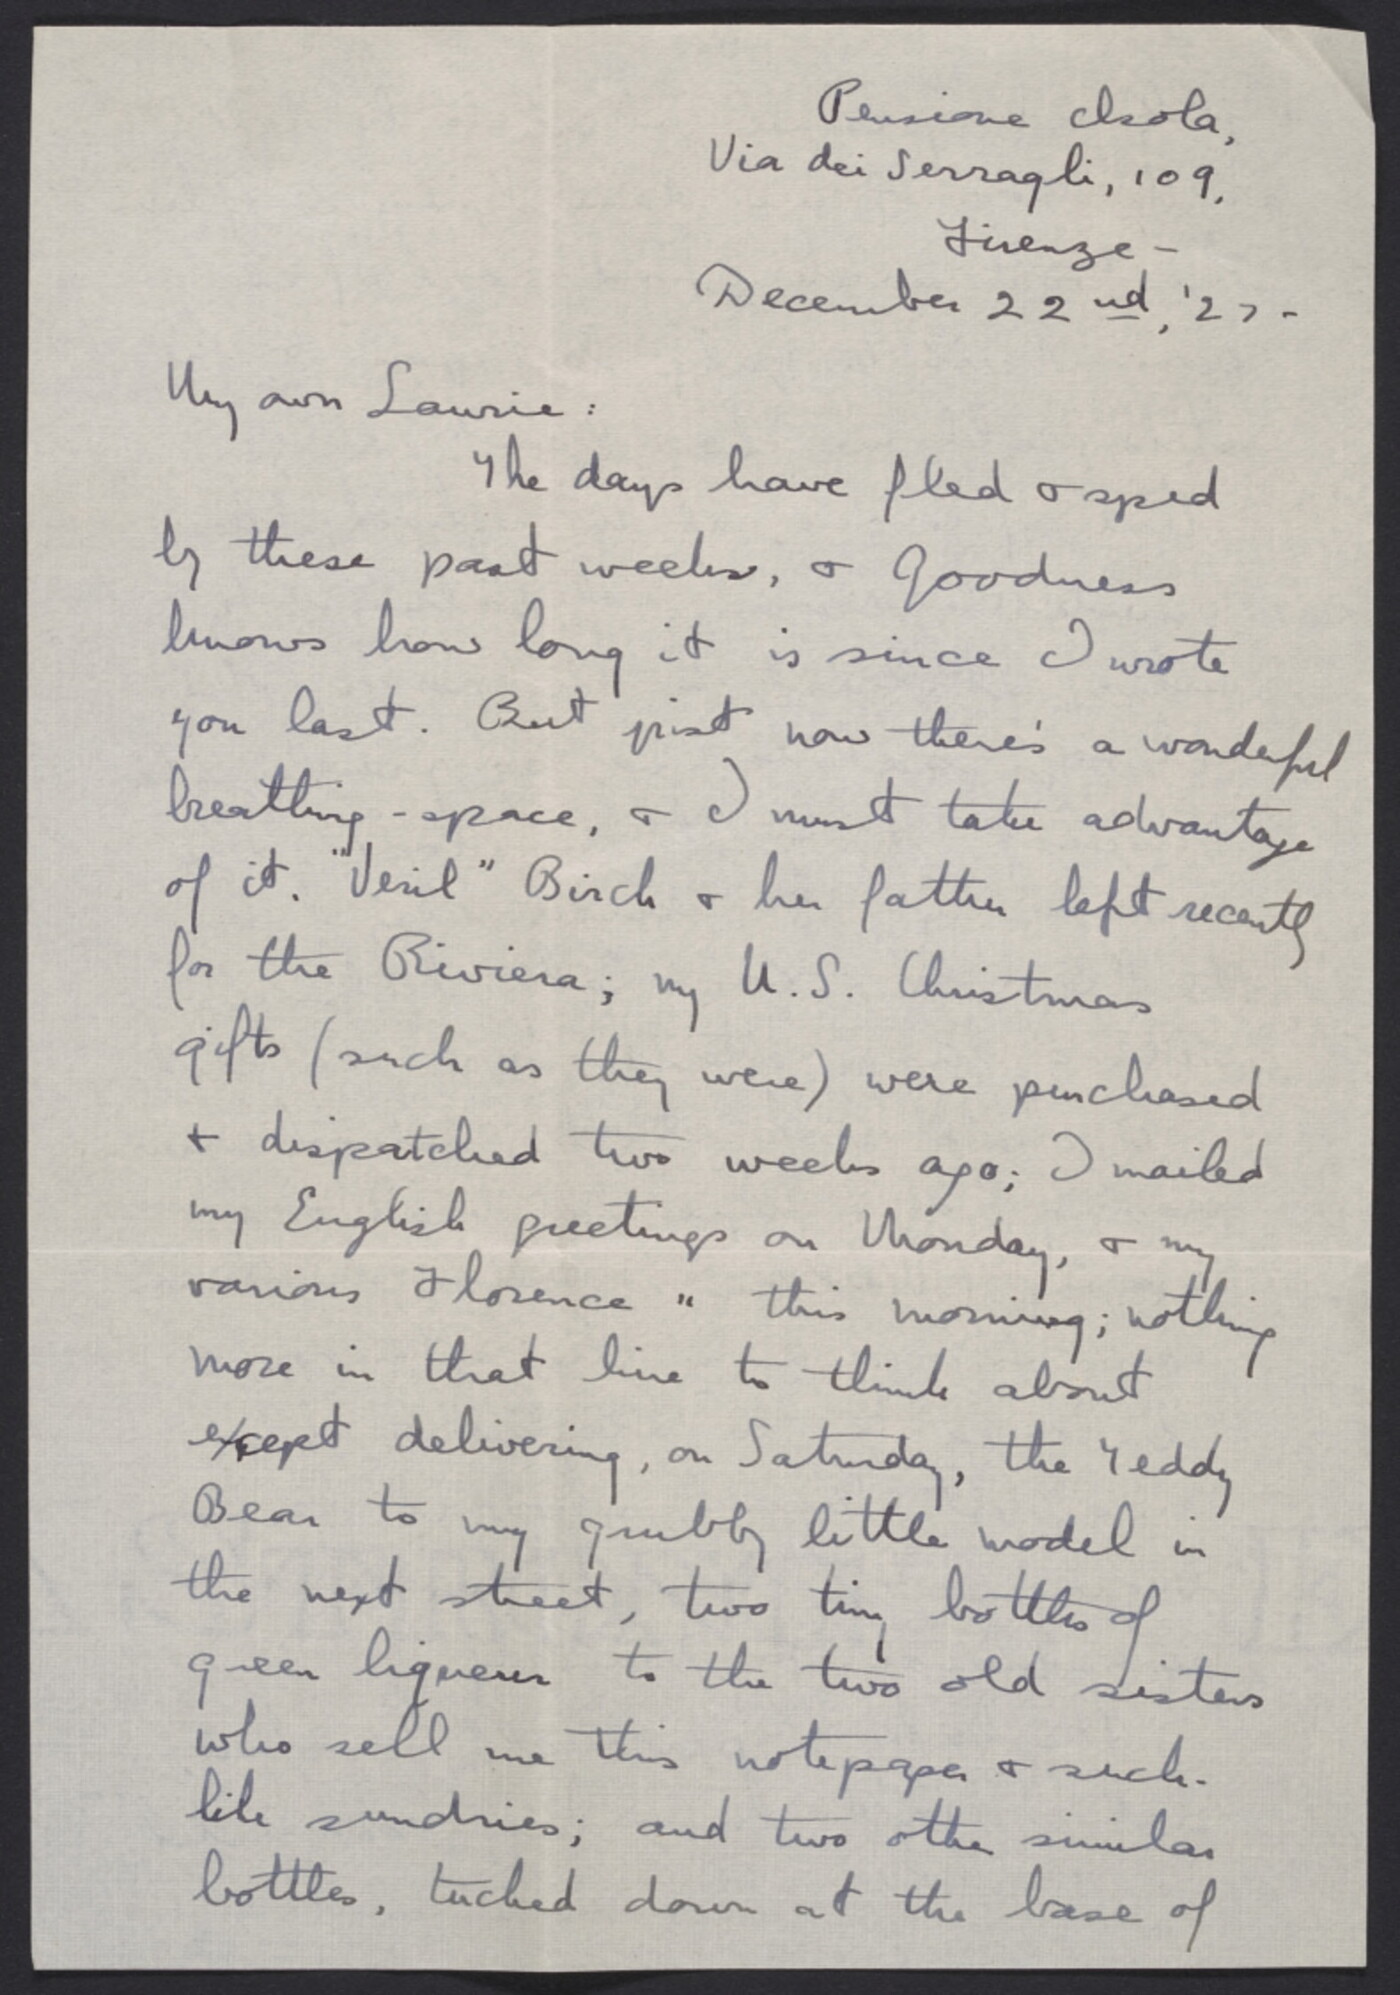 Pensione Isola,
Via dei Serragli, 109,
Firenze -
December 22nd, '27 -
My own Laurie:
The days have fled & sped
by these past weeks, & Goodness
knows how long it is since I wrote
you last. But just now there's a wonderful
breathing-space, & I must take advantage
of it. "Veril" Birch & her father left recently
for the Riviera; my U.S. Christmas
gifts (such as they were) were purchased
& dispatched two weeks ago; I mailed
my English greetings on Monday, & my
various Florence " this morning; nothing
more in that line to think about
except delivering, on Saturday, the Teddy
Bear to my grubby little model in
the next street, two tiny bottles of
green liqueur to the two old sisters
who sell me this notepaper & such-
like sundries; and two other similar
bottles, tucked down at the base of